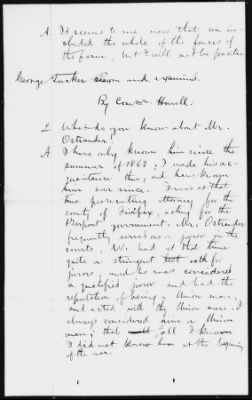 A. It seems to me now that we in-
cluded the whole of the fences of
the farm, but I will not be positive
George Tucker sworn and examined.
By Com'er Howell.
Q What do you know about Mr.
Ostrander?
A I have only known him since the
summer of 1862, I made his ac-
quaintance then, and have known
him ever since. I was at that
time prosecuting attorney for the
county of Fairfax, acting for the
Pierpont government. Mr. Ostrander
frequently served as a juror in the
courts. We had at that time
quite a stringent test oath for
jurors, and he was considered
a qualified juror and had the
reputation of being a Union man,
and acted with the Union men. I
always considered him a Union
man; that all I know
I did not know him at the beginning
of the war.